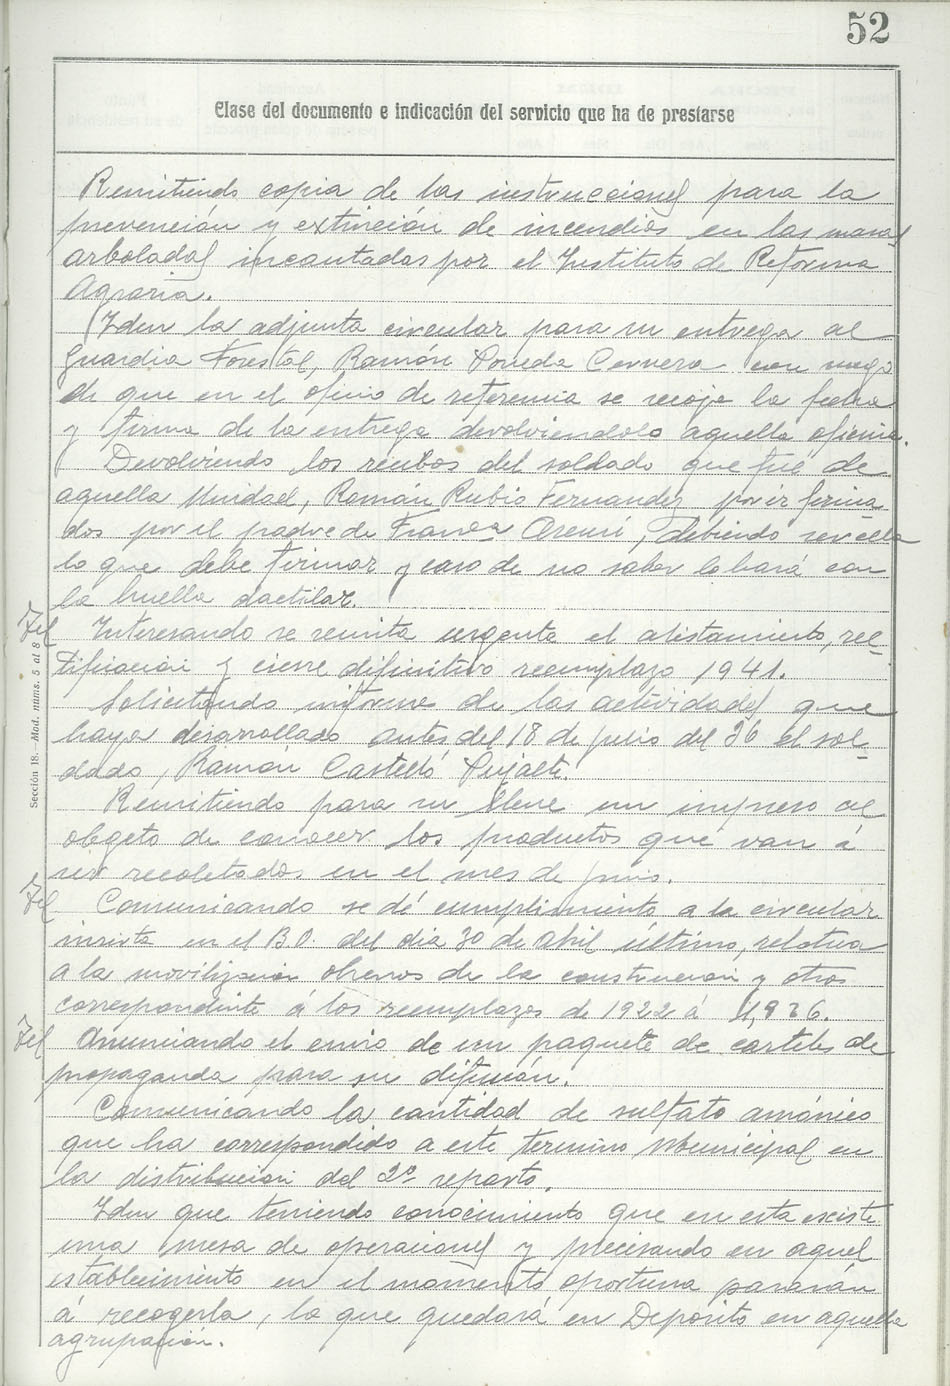 52
Clase del documento e indicación del servicio que ha de prestarse
Remitiendo copia de las instrucciones para la
prevención y extinción de incendios en las masas
arboladas incautadas por el Instituto de Reforma
Agraria.
Iden la adjunta circular para su entrega al
Guardia Forestal, Ramón Poveda Cervera con ruego
de que en el oficio de referencia se recoja la fecha
y firma de la entrega devolviendolo aquella oficina.
Devolviendo los recibos del soldado que fué de
aquella Unidad, Román Rubio Fernandez por ir firma
dos por el padre de Franca Asensi, debiendo ser ella
lo que debe firmar y caso de no saber lo hará con
la huella dactilar.
Interesando se remita urgente el alistamiento, rec
tificacion y cierre difinitivo reemplazo 1941.
Solicitando informe de las actividades que
haya desarrollado antes del 18 de julio del 36 el sol
dado, Ramón Castelló Pujalte.
Remitiendo para su llene un impreso al
obgeto de conocer los productos que van á
ser recoletados en el mes de junio.
Comunicando se dé cumplimiento a la circular
inserta en el B.O. del dia 30 de abril último, relativa
a la movilizacion obreros de la construccion y otros
correspondiente á los reemplazos de 1922 á 1,936.
Anunciando el envio de un paquete de carteles de
propaganda para su difusión.
Comunicando la cantidad de sulfato amónico
que ha correspondido a este termino Municipal en
la distribucion del 2º reparto.
Iden que teniendo conocimiento que en esta existe
una mesa de operaciones y precisando en aquel
establecimiento en el momento oportuno pasarán
á recogerla, la que quedará en Depósito en aquella
agrupacion.
Sección 18.—Mod. nums. 5 al 8